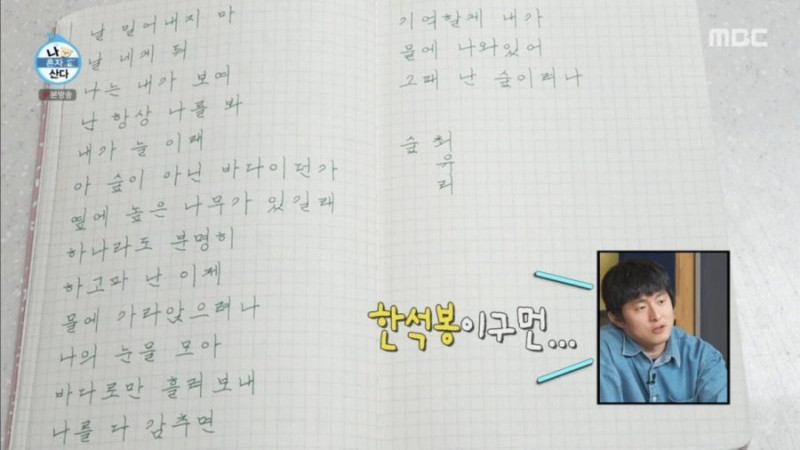 나
혼자
산다
본방송
MBC
날 밀어내지 마
날 네게 둬
나는 내가 보여
난 항상 나를 봐
내가 늘 이래
아 숲이 아닌 바다이던가
옆에 높은 나무가 있길래
하나라도 분명히
하고파 난 이제
물에 가라앉으려나
나의 눈물 모아
바다로만 흘려보내
나를 다 감추면
기억할게 내가
뭍에 나와있어
그때 난 숲이려나
숲 최
유
리
한석봉이구먼...